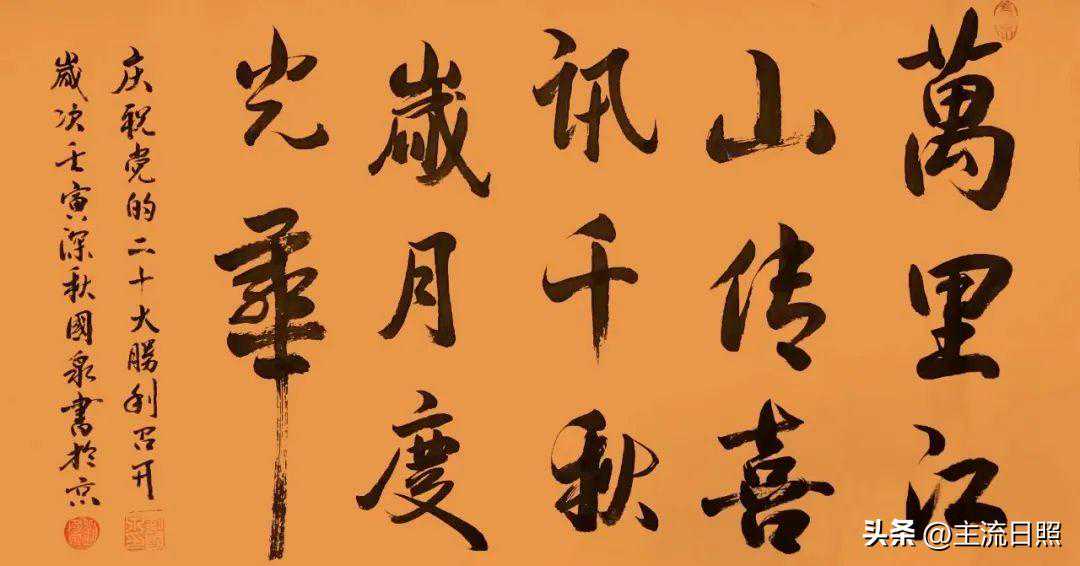 萬里江
山传喜
讯千秋
歲月度
光華
庆祝党的二十大勝利召开
歲次壬寅深秋國泉書於京
头条@主流日照